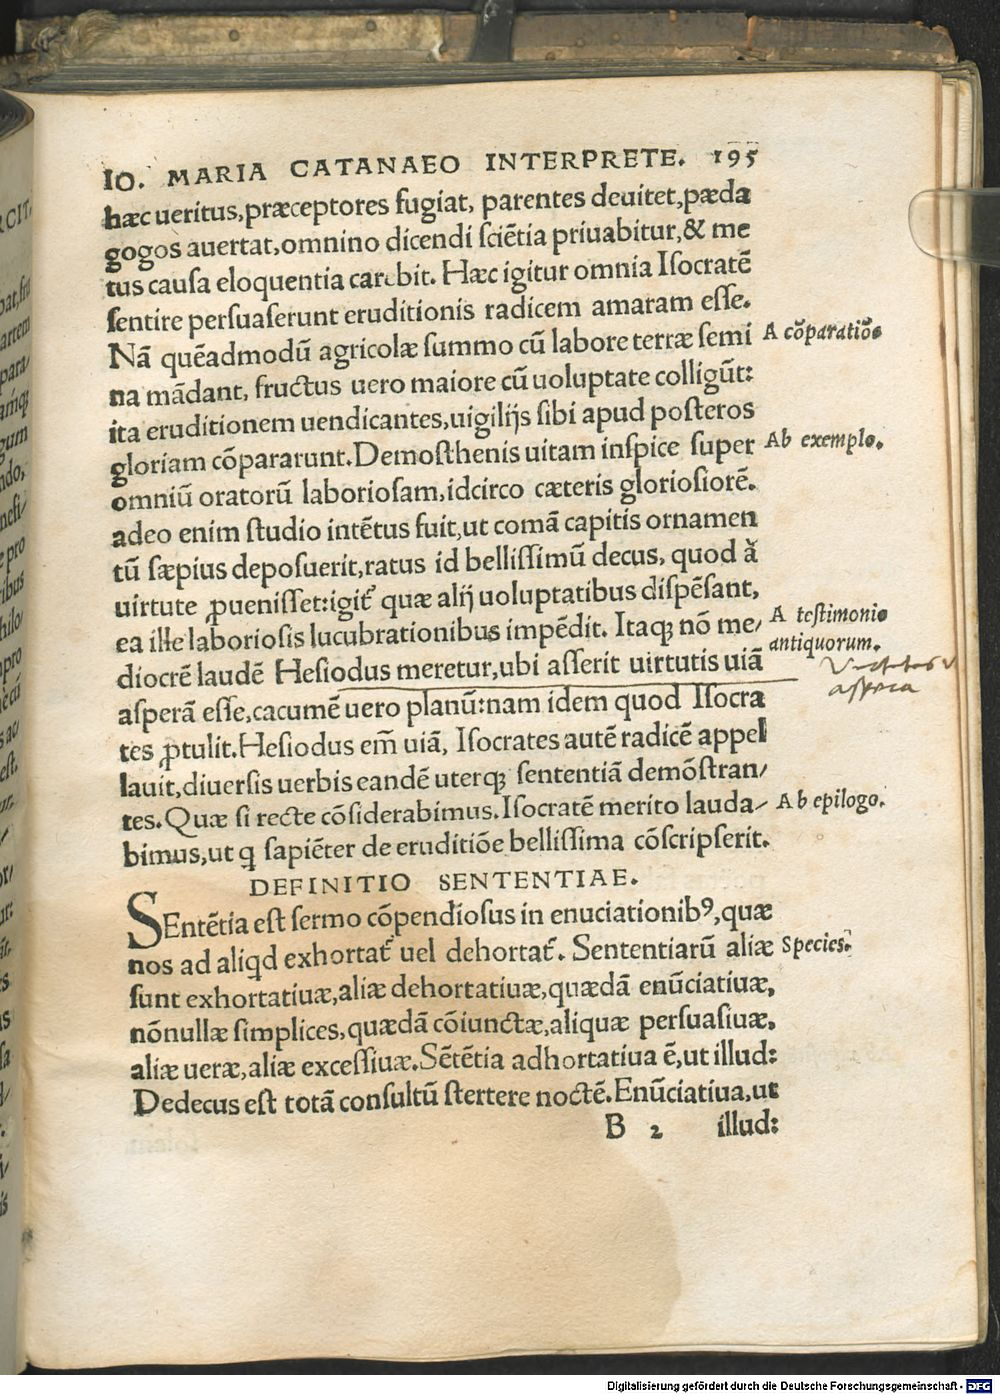 IO. MARIA CATANAEO INTERPRETE. 195
hæc ueritus,præceptores fugiat, parentes deuitet,pæda
gogos auertat,omnino dicendi sciẽtia priuabitur,& me
tus causa eloquentia carebit. Hæc igitur omnia Isocratẽ
sentire persuaserunt eruditionis radicem amaram esse.
Nã quẽadmodũ agricolæ summo cũ labore terræ semi
A cõparatiõe
na mãdant, fructus uero maiore cũ uoluptate colligũt:
ita eruditionem uendicantes,uigilijs sibi apud posteros
gloriam cõpararunt.Demosthenis uitam inspice super
Ab exemplo.
omniũ oratorũ laboriosam,idcirco cæteris gloriosiorẽ.
adeo enim studio intẽtus fuit,ut comã capitis ornamen
tũ sæpius deposuerit,ratus id bellissimũ decus, quod ã
uirtute ꝓuenisset:igit᷑ quæ alij uoluptatibus dispẽsant,
ea ille laboriosis lucubrationibus impẽdit. Itaqꝫ nõ me/
A testimonio
antiquorum.
diocrẽ laudẽ Hesiodus meretur,ubi asserit uirtutis uiã
aspera
asperã esse,cacumẽ uero planũ:nam idem quod Isocra
tes ꝓtulit.Hesiodus em̃ uiã, Isocrates autẽ radicẽ appel
lauit,diuersis uerbis eandẽ uterqꝫ sententiã demõstran/
tes.Quæ si recte cõsiderabimus.Isocratẽ merito lauda/
Ab epilogo.
bimus,ut q sapiẽter de eruditiõe bellissima cõscripserit.
DEFINITIO SENTENTIAE.
SEntẽtia est sermo cõpendiosus in enuciationibꝰ,quæ
nos ad aliqd exhortat᷑ uel dehortat᷑. Sententiarũ aliæ
Species.
sunt exhortatiuæ,aliæ dehortatiuæ,quædã enũciatiuæ,
nõnullæ simplices,quædã cõiunctæ,aliquæ persuasiuæ,
aliæ ueræ,aliæ excessiuæ.Sẽtẽtia adhortatiua ẽ,ut illud:
Dedecus est totã consultũ stertere noctẽ.Enũciatiua,ut
B 2 illud:
Digitalisierung gefördert durch die Deutsche Forschungsgemeinschaft - DFG